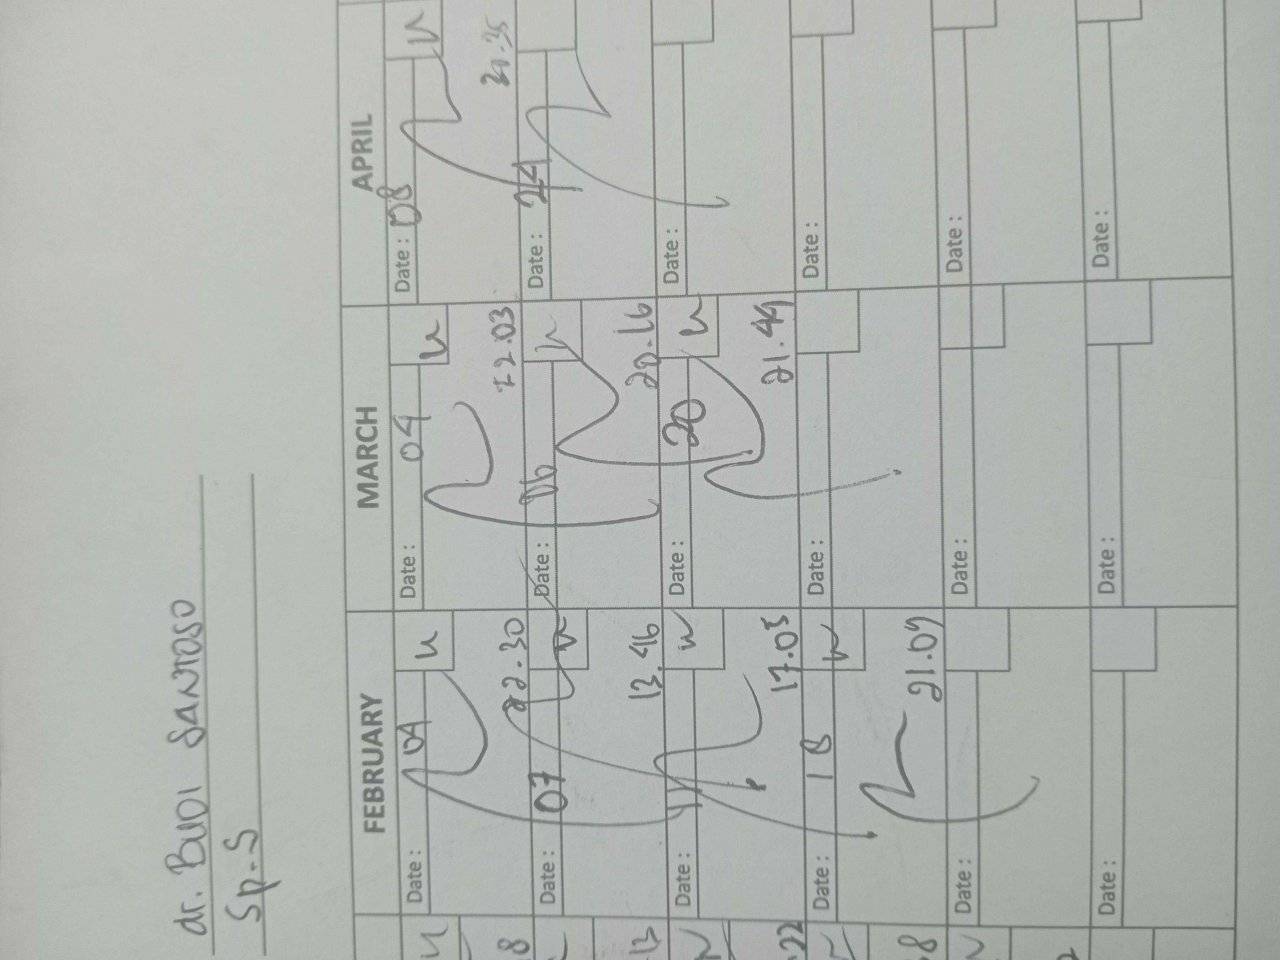 dr. BUDI SANTOSO
Sp.S
FEBRUARY MARCH APRIL
Date : 04 u Date : 04 u Date : 08 u
22.30 22.03 20.35
Date : 07 u Date : 06 u Date : 24
13.46 20.16
Date : 11 u Date : 20 u Date :
17.03 21.44
Date : 18 u Date : Date :
21.09
Date : Date : Date :
Date : Date : Date :